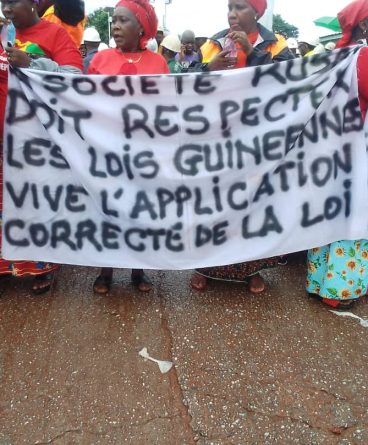 SOCIETE RUSAL
DOIT RESPECTER
LES LOIS GUINEENNES
VIVE L'APPLICATION
CORRECTE DE LA LOI